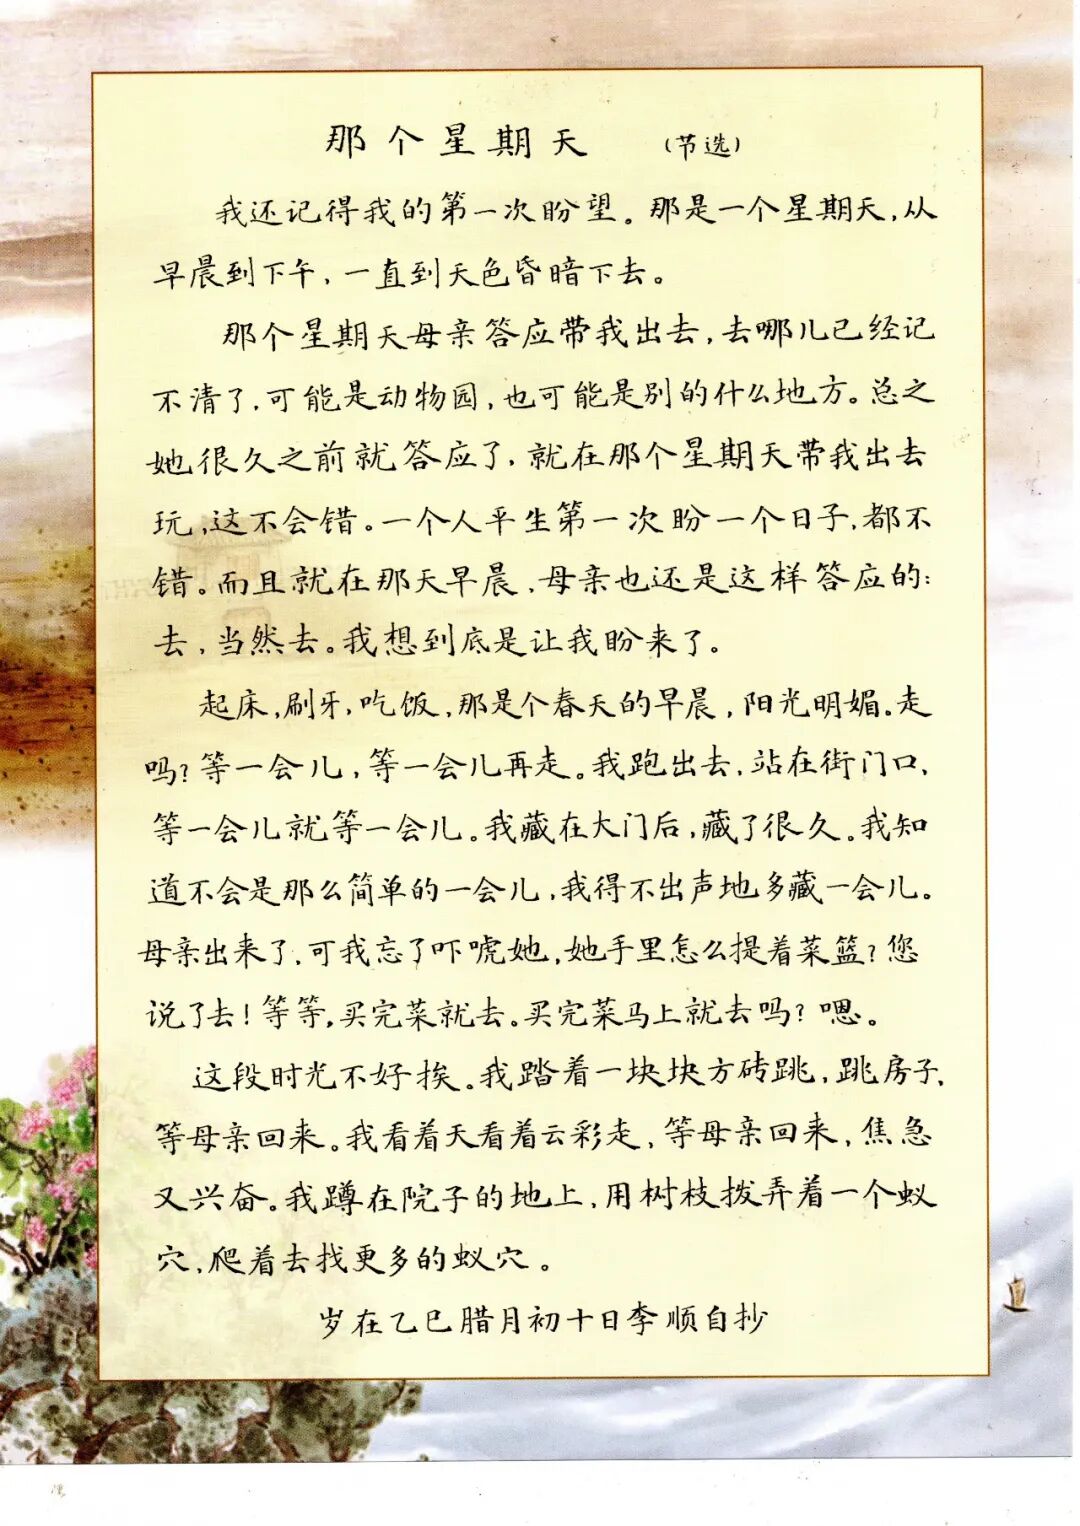 那个星期天 (节选)
我还记得我的第一次盼望。那是一个星期天,从
早晨到下午,一直到天色昏暗下去。
那个星期天母亲答应带我出去,去哪儿已经记
不清了,可能是动物园,也可能是别的什么地方。总之
她很久之前就答应了,就在那个星期天带我出去
玩,这不会错。一个人平生第一次盼一个日子,都不
错。而且就在那天早晨,母亲也还是这样答应的:
去,当然去。我想到底是让我盼来了。
起床,刷牙,吃饭,那是个春天的早晨,阳光明媚。走
吗?等一会儿,等一会儿再走。我跑出去,站在街门口,
等一会儿就等一会儿。我藏在大门后,藏了很久。我知
道不会是那么简单的一会儿,我得不出声地多藏一会儿。
母亲出来了,可我忘了吓唬她,她手里怎么提着菜篮?您
说了去!等等,买完菜就去。买完菜马上就去吗?嗯。
这段时光不好挨。我踏着一块块方砖跳,跳房子,
等母亲回来。我看着天看着云彩走,等母亲回来,焦急
又兴奋。我蹲在院子的地上,用树枝拨弄着一个蚁
穴,爬着去找更多的蚁穴。
岁在乙巳腊月初十日李顺自抄